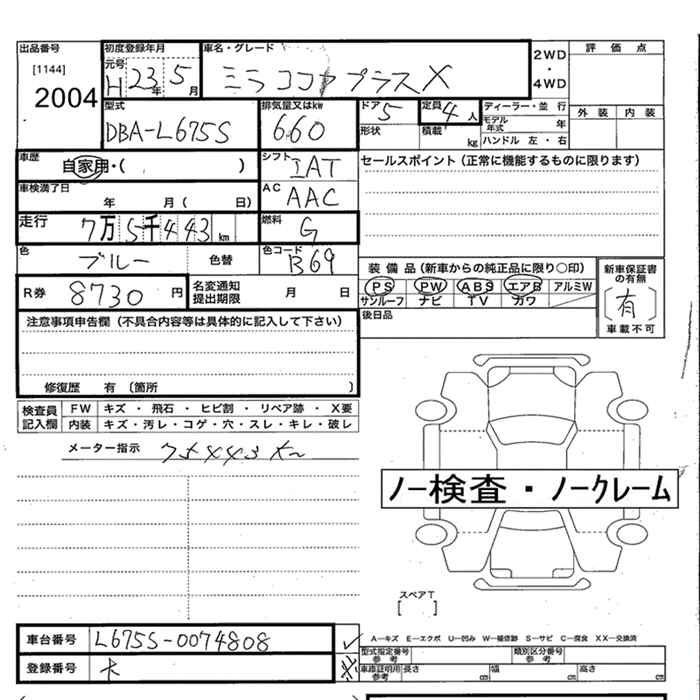 出品番号
[1144]
2004
初度登録年月
元号
H 23年 5月
車名・グレード
ミラココアプラスX
2WD
・
4WD
評価点
外装 内装
型式
DBA-L675S
排気量又はkw
660
ドア
5
形状
定員
4人
積載
kg
ディーラー・並行
モデル年式 年
ハンドル 左・右
車歴
自家用・( )
シフト
IAT
セールスポイント (正常に機能するものに限ります)
車検満了日
年 月( 日)
AC
AAC
走行
7万5千443km
燃料
G
色
ブルー
色替
色コード
B69
装備品(新車からの純正品に限り○印)
PS PW ABS エアB アルミW
サンルーフ ナビ TV カワ
新車保証書の有無
[有]
車載不可
R券
8730円
名変通知
提出期限
月 日
後日品
注意事項申告欄 (不具合内容等は具体的に記入して下さい)
修復歴 有 〔箇所 〕
検査員
記入欄
FW キズ・飛石・ヒビ割・リペア跡・X要
内装 キズ・汚レ・コゲ・穴・スレ・キレ・破レ
メーター指示
ノー検査・ノークレーム
スペアT
[ ]
車台番号
L675S-0074808
登録番号
A−キズ E−エクボ U−凹み W−補修跡 S−サビ C−腐食 XX−交換済
型式指定番号
参考
類別区分番号
参考
車庫証明用
参考
長さ cm
幅 cm
高さ cm